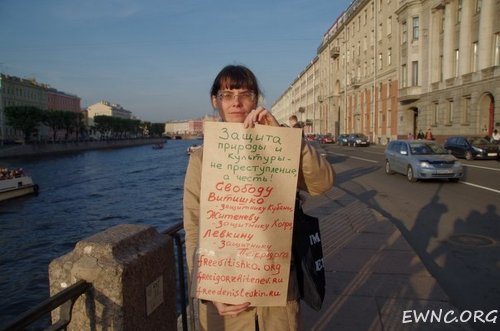 Защита
природы и
культуры-
не преступление,
а честь!
Свободу
Витишко
-защитнику Кубани,
Житеневу
-защитнику Хопра,
Левкину
-защитнику
freevitishko.org
freeigorzhitenev.ru
freedenislevkin.ru
EWNC.ORG